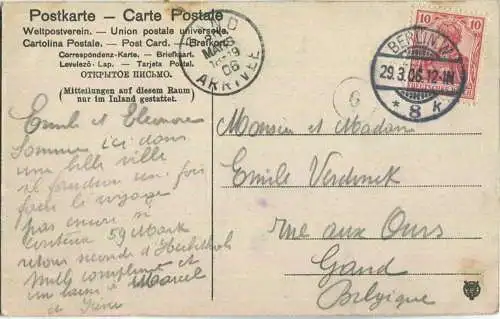 Postkarte - Carte Postale
Weltpostverein. - Union postale universelle.
Cartolina Postale. - Post Card. - Brefkort.
Correspondenz-Karte. - Briefkaart.
Levelező-Lap. - Tarjeta Postal.
ОТКРЫТОЕ ПИСЬМО.
(Mitteilungen auf diesem Raum
nur im Inland gestattet.)
GAND
MARS
06
ARRIVEE
10 10
BERLIN
29.3.06.12-1N.
* 8 k
6
Emile et Eleonore
Sommes ici dans
une belle ville
il faudra un fois
faire le voyage
pas encore si
59 Mark
retour
Mille compliments et
un baiser Marcel
de
Monsieur et Madame
Emile Verdonck
rue aux Ours
Gand
Belgique